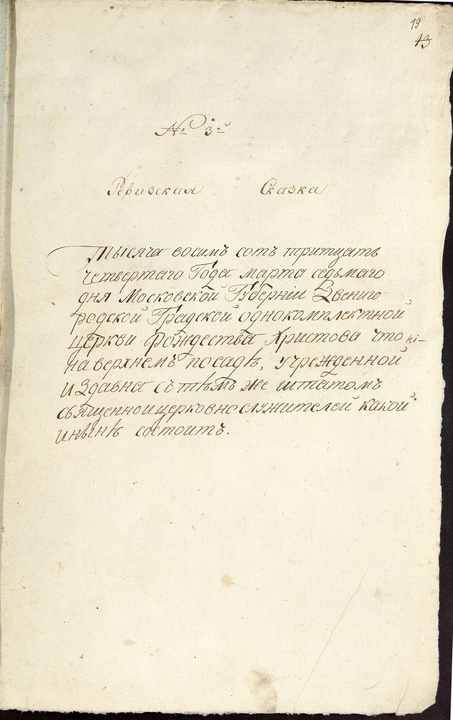 19
43
№ 3й
Ревизская Сказка
Тысяча восимъ сотъ тритцать
Четвертаго Года марта седьмаго
дня Московской Губерніи Звениго
родской Градской однокомплектной
церкви Рождества Христова что
на верхнемъ посадѣ, учрежденной
издавна сътѣмъ же штатомъ
священноицерковнослужителей какой
инынѣ состоитъ.